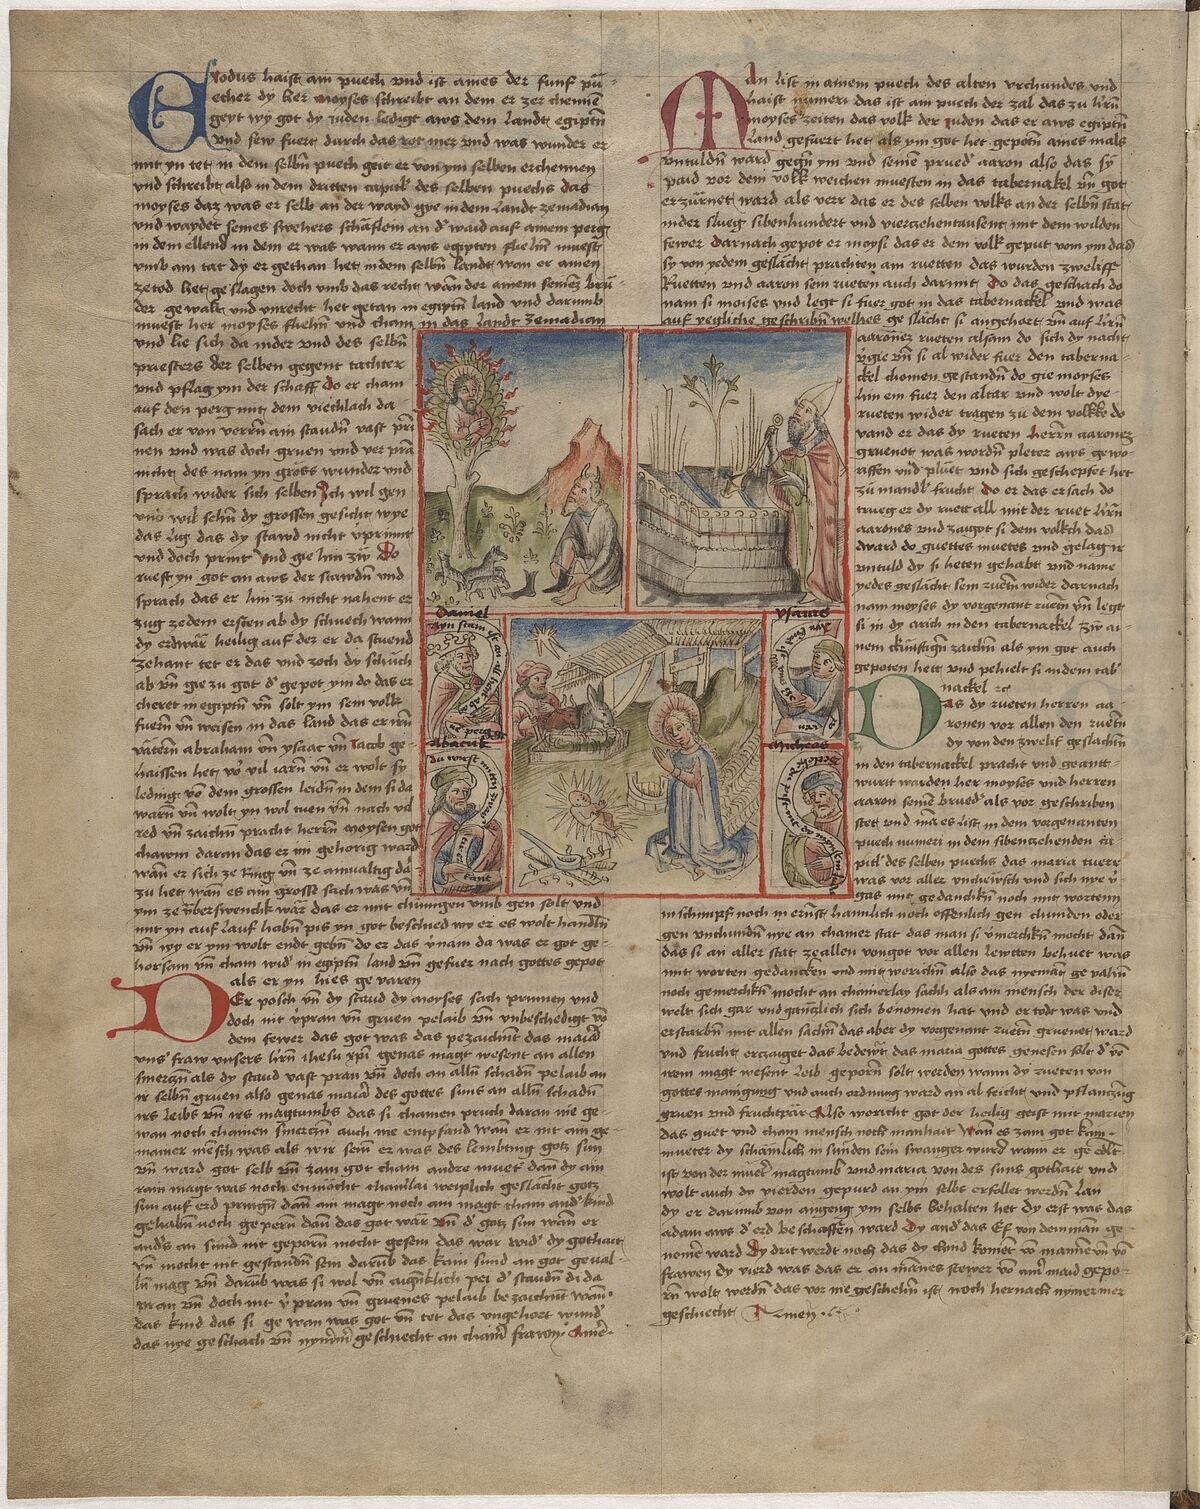 Exodus haist ain puech vnd ist aines der funf pu-
echer dy her moyses schreibt an dem er zerchennen
geyt wy got dy Juden ledigt aws dem landt egiptn̄
vnd sew fuert durch das rot mer vnd was wunder er
mit yn tet in dem selbn̄ puech geit er von ym selben erchennen
vnd schreibt also in dem dritten capitl des selben puechs das
moyses daz was er selb an der wayd gie in dem landt zemadian
vnd waydet seines swehers schäflein an d' waid auf ainem perg
in dem ellend in dem er was wann er aws egipten fliehn̄ muest
vmb ain tat dy er gethan het in dem selbn̄ landt wan er ainen
zetod het geslagen doch vmb das recht wan der ainem seinem brü-
der gewalt vnd vnrecht het getan in egiptn̄ land vnd darumb
muest her moyses fliehn̄ vnd cham in das landt zemadian
vnd lie sich da nider vnd des selbn̄
priesters der selben gegent tachter
vnd pflag ym der schaff Do er cham
auf den perg mit dem viechlach da
sach er von verrn̄ ain staudn̄ vast pri
nen vnd was doch gruen vnd ver pran
nicht des nam yn gross wunder vnd
sprach wider sich selben Ich wil gen
vnd wil sehn̄ dy grossen gesicht wye
das lug das dy stawd nicht v'print
vnd doch print vnd gie hin zw Do
ruest yn got an aws der stawdn̄ vnd
sprach das er hin zu nicht nahent er
zug zedem ersten ab dy schuech wann
dy erdwär heilig auf der er da stuend
zehant tet er das vnd zoch dy schuch
ab vn̄ gie zu got d' gepot ym do das er
cheret in egiptn̄ vn̄ solt ym sein volk
fuern̄ vn̄ weisen in das land das er irn̄
vätern abraham vn̄ ysaac vn̄ Jacob ge-
haissen het vor vil iarn̄ vn̄ er wolt sy
leding vō dem grossen leidn̄ in dem si da
warn̄ vn̄ wolt yn wol tuen vn̄ nach vil
red vn̄ zaichn̄ pracht herrn̄ moysen got
chawm daran das er im gehorig ward
wan er sich ze king vn̄ ze anwaltig da
zu het wan es ain grosse sach was vn̄
ym ze überswenckh wär das er mit chünigen vmb gen solt vnd
mit yn auf lauf habn̄ pis yn got beschied wy er es wolt handln̄
vn̄ wy er ym wolt endt gebn̄ do er das v'nam da was er got ge-
horsam vn̄ cham wid' in egiptn̄ land vn̄ gefuer nach gottes gepot
als er yn hies gevaren
Der posch vn̄ dy staud dy moyses sach prinnen vnd
doch nit v'pran vn̄ gruen pelaib vn̄ vnbeschedigt vō
dem fewer das got was das pezaichnt das maria
vns' fraw vnsers hrn̄ ihesu xp̄i genas magt wesent an allen
smerczn̄ als dy staud vast pran vn̄ doch an alln̄ schadn̄ pelaib an
ir selbn̄ gruen also genas maria des gottes suns an alln̄ schadn̄
irs leibs vn̄ irs magtumbs das si chainen pruch daran nie ge-
wan noch chainen smerczn̄ auch nie entpfand wan̄ er nit ain ge-
mainer mensch was als wir sein er was des lembting gotz sun
vn̄ ward got selb vn̄ zam got cham andre mueter dan̄ dy ain
rain magt was noch enmöcht chainlai weiplich geslächt gotz
sun auf erd pringn̄ dan̄ ain magt noch ain magt chain and' kind
gehabn̄ noch gepern̄ dan̄ das got wär vn̄ d' gotz sun wan̄ er
and's an sünd nit geporn̄ mocht gesein das wär wid' dy gothait
vn̄ mocht nit gestandn̄ sein darüb das kain sünd an got geual-
ln̄ mag vn̄ darüb was si wol vn̄ aigenklich pei d' staudn̄ di da
pran vn̄ doch nit v'pran vn̄ gruenes pelaib bezaichnt wan̄
das kind das si gewan was got vn̄ tet das vngehort wund'
das nye geschach vn̄ nymm̄er geschiecht an chain' frawn̄ Amē
Man list in ainem puech des alten vrchundes vnd
haist numeri das ist ain puech der zal das zu hrn̄
moyses zeiten das volk der iuden das er aws egiptn̄
land gefuert het als ym got het gepotn̄ ains mals
vntuldn̄ ward gegn̄ ym vnd seinē prued' aaron also das sy
paid vor dem volk weichen muesten in das tabernakel vn̄ got
erzürnet ward als verr das er des selben volks an der selbn̄ stat
nider slueg sibenhundert vnd vierzehentausent mit dem wilden
fewer Darnach gepot er moysi das er dem volk geput von ym das
sy von yedem geslächt prachten ain ruetten das wurden zwelif
Ruetten vnd aaron sein rueten auch darmit Do das geschach do
nam si moises vnd legt si fuer got in das tabernackel vnd was
auf yegliche geschribn̄ welhes geslächt si angehort vn̄ auf hrn̄
aarones rueten alsam do sich dy nacht
v'gie vn̄ si al wider fuer den taberna-
ckel chomen gestandn̄ do gie moyses
hin ein fuer den altar vnd wolt dye
rueten wider tragen zu dem volkh do
vand er das dy rueten herrn aarones
gruenot was wordn̄ pleter aws gewo-
rffen vnd pluet vnd sich geschepfet het
zu mandl frucht Do er das ersach do
trueg er dy ruett all mit der ruet hrn̄
aarones vnd zaigot si dem volkch das
ward do guettes muetes vnd gelag ir
vntuld dy si heten gehabt vnd name
yedes geslächt sein ruetn̄ wider darnach
nam moyses dy vorgenant ruetn̄ vn̄ legt
si in dy arich in den tabernackel zw ai-
nem künftign̄ zaichn̄ als ym got auch
gepoten hett vnd pehielt si in dem tab'
nackel ꝛc
Das dy rueten herren aa-
ronen vor allen den ruetn̄
dy von den zwelif geslächn̄
in den tabernackel pracht vnd geantt-
wurt warden her moyses vnd herren
aaron seinē brued' als vor geschriben
stet vnd man es list in dem vorgenanten
puech numeri in dem sibentzehenden ca
pitl des selben puechs das maria tuerr
was vor aller vncheusch vnd sich nye v'
gas mit gedanckn̄ noch mit wortenn
in schimpf noch in ernst haimlich noch offenlich gen chunden oder
gen vnchundn̄ nye an chainer stat das man si v'merckn̄ mocht dan̄
das si an aller stat ze allen von got vor allen lewtten behuet was
mit worten gedancken vnd mit werichn̄ also das nyemanc gepahn̄
noch gemerckn̄ mocht an chainerlay sachh als ain mensch der diser
welt sich gar vnd gäntzlich sich benomen hat vnd er todt was vnd
erstarbn̄ mit allen sachn̄ das aber dy vorgenant ruetn̄ gruenet ward
vnd frucht erczaiget das bedewt das maria gottes genesen solt d' vō
irem magt wesent leib geporn̄ solt werden wann dy rueten von
gottes mainigung vnd auch ordnung ward an al feicht vnd pflanczūg
gruen vnd fruchtpär Also woricht got der heilig geist mit marien
das guet vnd cham mensch noch manhait Wan es zam got kain
mueter dy schämlich in sünden sein swanger wurd wann er geedlt
ist von der muet' magtumb vnd maria von des suns gothait vnd
wolt auch dy vierden gepurd an ym selbs erfollet werdn̄ han
dy er darumb von angeng ym selbs behalten het dy erst was das
adam aws d' erd beschaffen ward Dy and' das Ef von dem man ge-
nomē ward Dy drit werdt noch das dy chind komēt vō mannē vn̄ vō
frawen dy vierd was das er an mannes stewer vō ain' maid gepo-
rn̄ wolt werdn̄ das vor nie geschehn̄ ist noch hernach nymermer
geschiecht Amen ꝛc
Daniel
Ysaias
Abacuk
Micheas